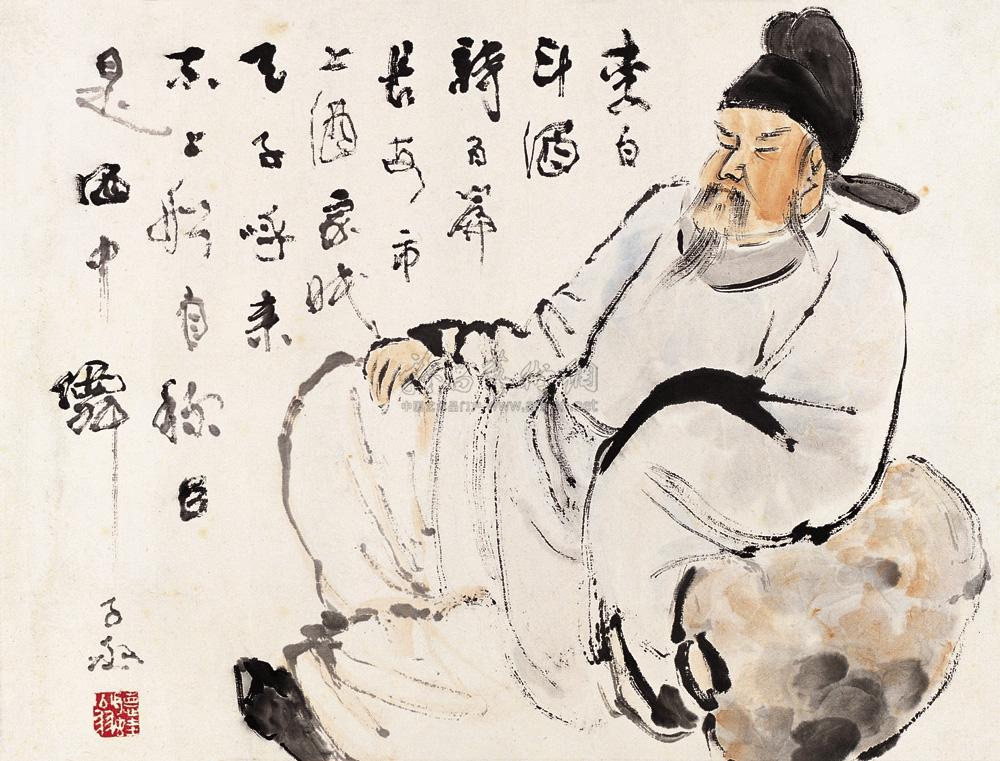 李白
斗酒
詩百篇
長安市
上酒家眠
天子呼来
不上船自称臣
是酒中僊